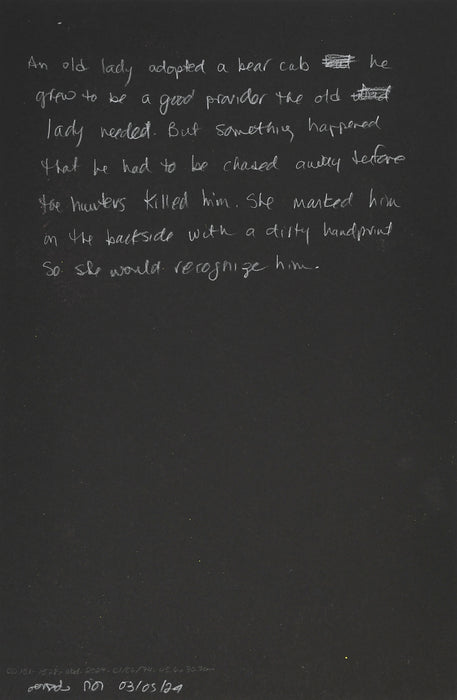 An old lady adopted a bear cab he
grew to be a good providor the old
lady needed. But something happened
that he had to be chased away before
the hunters killed him. She marked him
on the backside with a dirty handprint
so she would recognize him.
03/05/24